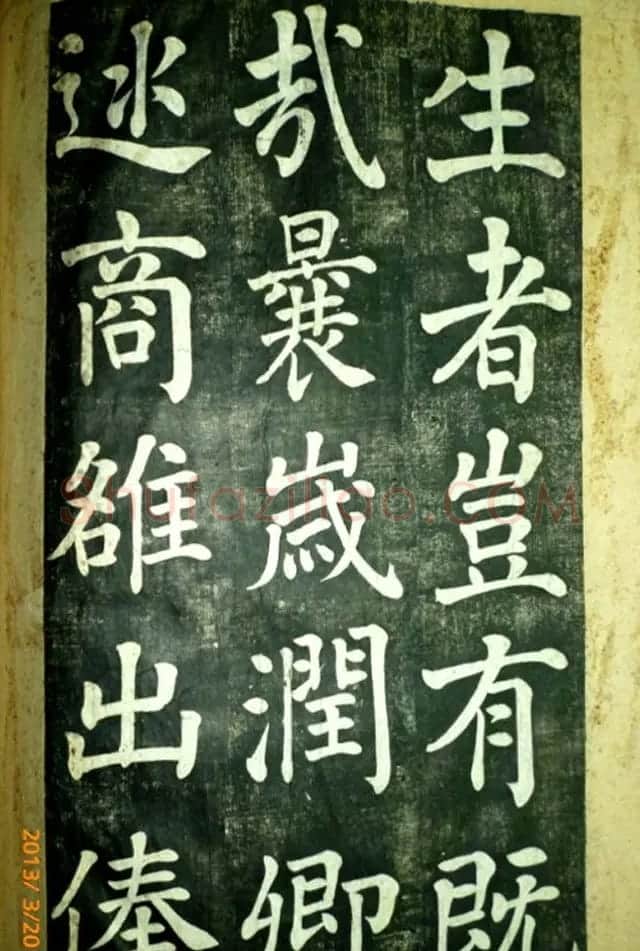 生者豈有既
㦲曩歲潤卿
商雒出俸
Shufaziliao.COM
2013/ 3/20